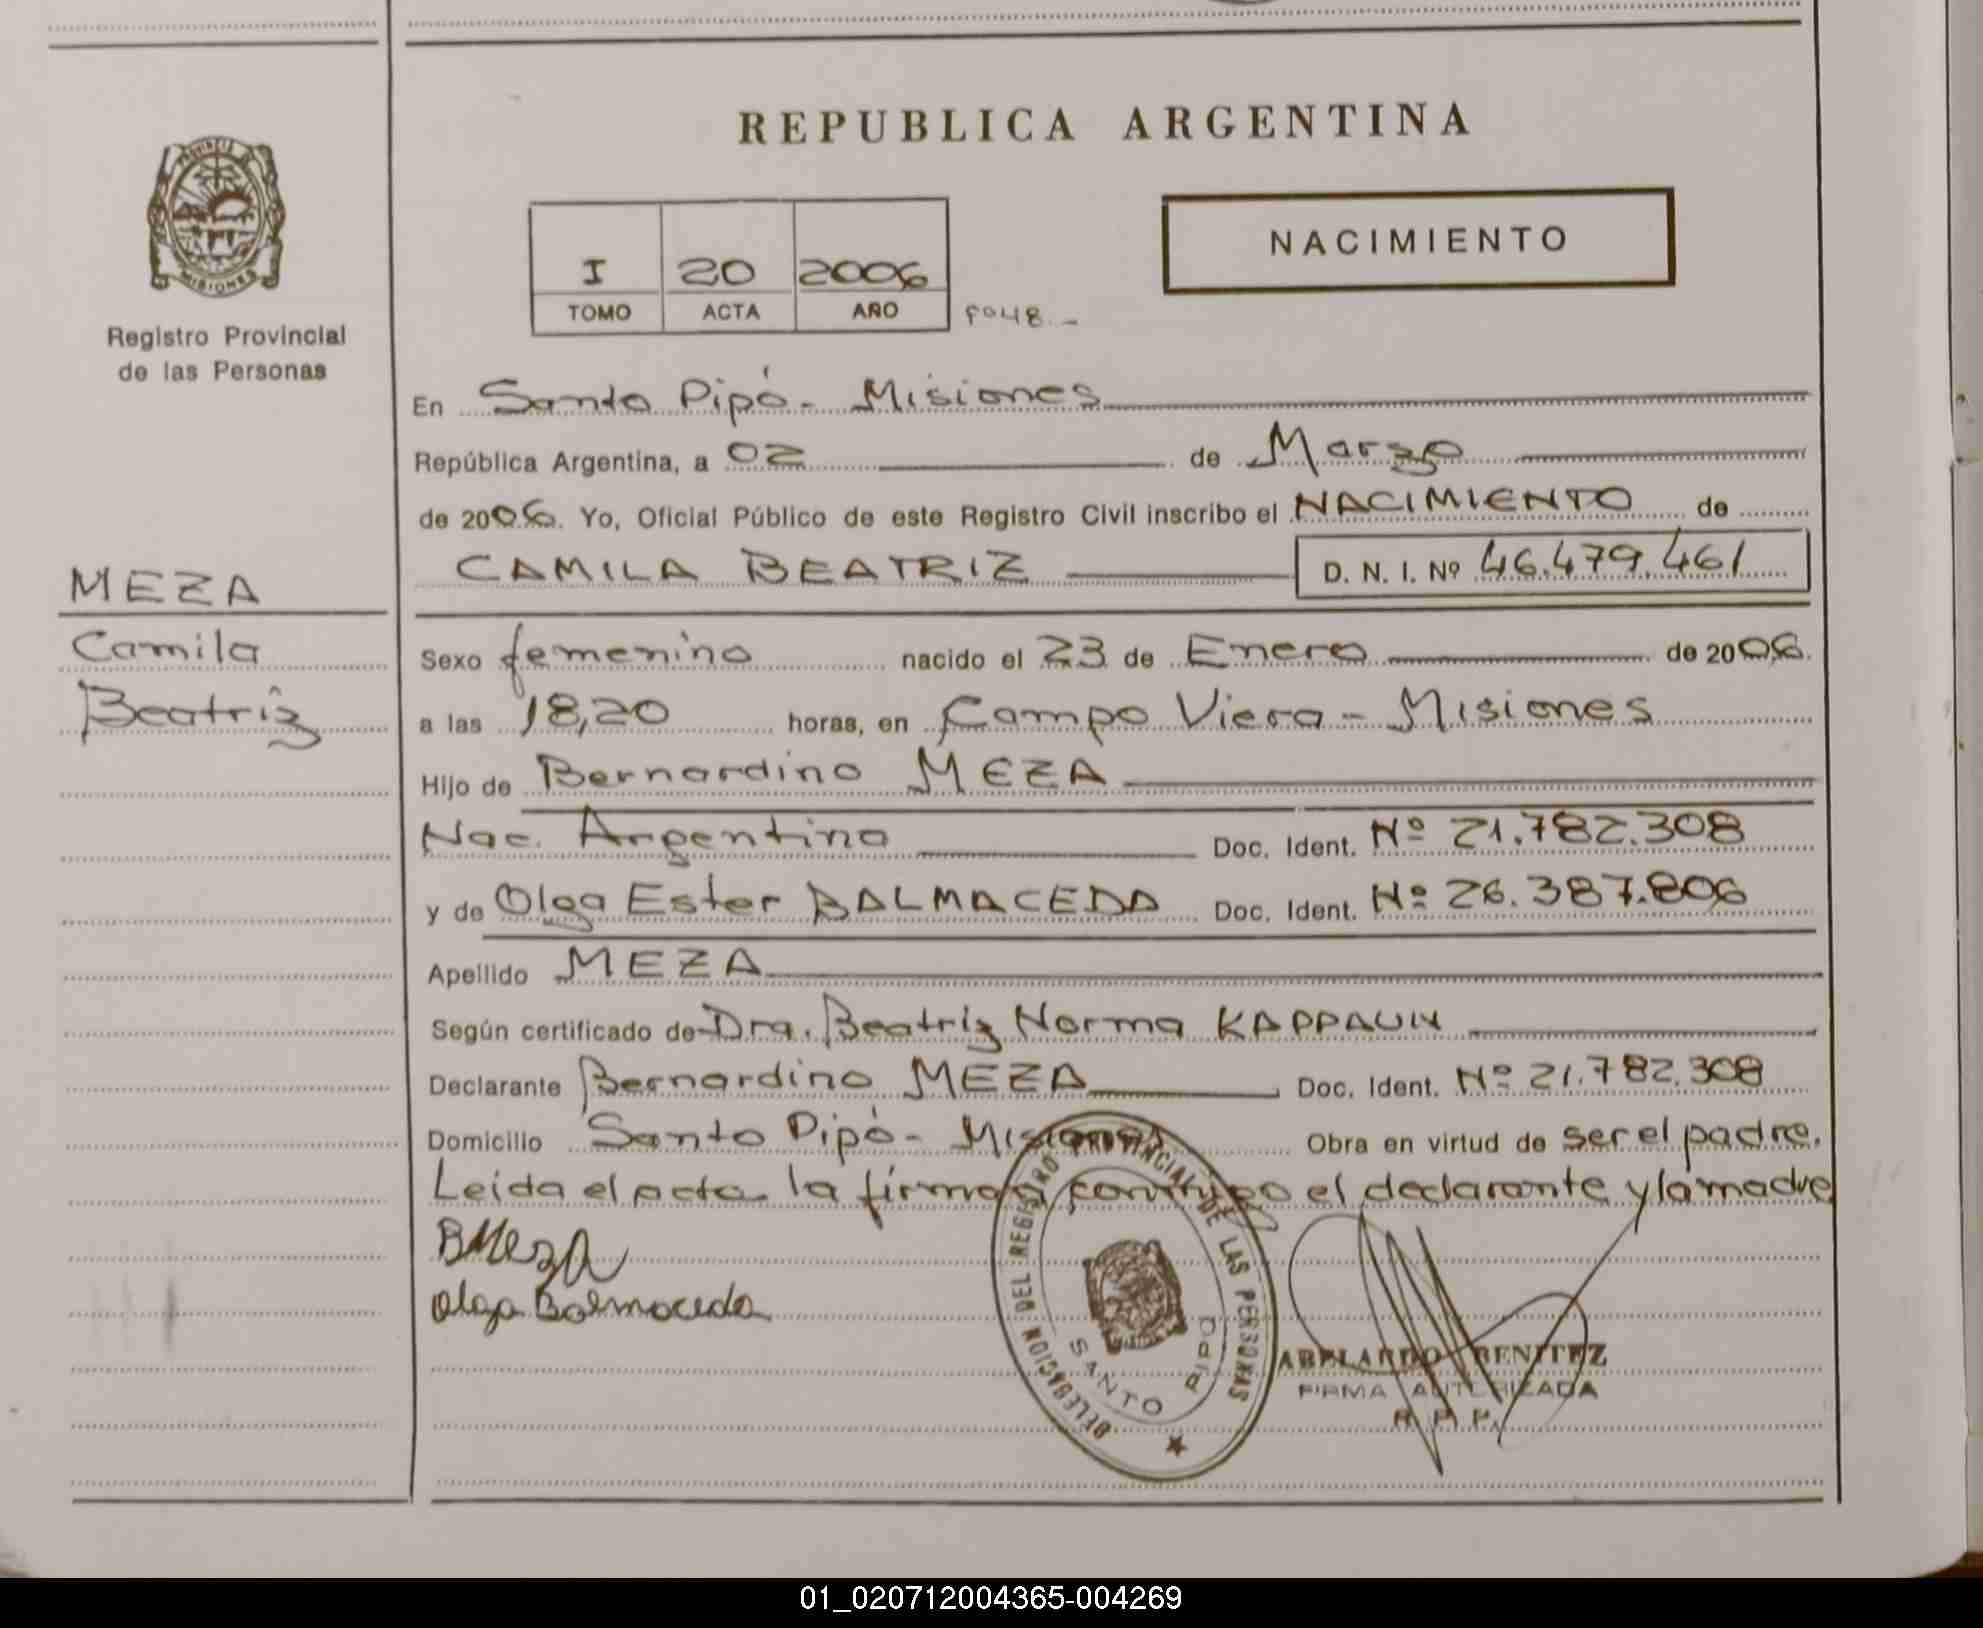 REPUBLICA ARGENTINA
PROVINCIA DE
MISIONES
Registro Provincial
de las Personas
NACIMIENTO
I 20 2006
TOMO ACTA AÑO Fº 48.-
En Santo Pipó - Misiones
República Argentina, a 02 de Marzo
de 2006. Yo, Oficial Público de este Registro Civil inscribo el NACIMIENTO de
CAMILA BEATRIZ D. N. I. Nº 46.479.461
MEZA
Camila
Beatriz
Sexo femenino nacido el 23 de Enero de 2006.
a las 18,20 horas, en Campo Viera - Misiones
Hijo de Bernardino MEZA
Nac. Argentino Doc. Ident. Nº 21.782.308
y de Olga Ester BALMACEDA Doc. Ident. Nº 26.387.806
Apellido MEZA
Según certificado de Dra. Beatriz Norma KAPPAUN
Declarante Bernardino MEZA Doc. Ident. Nº 21.782.308
Domicilio Santo Pipó - Misiones Obra en virtud de ser el padre.
Leida el acta la firman conmigo el declarante y la madre
BMeza
Olga Balmaceda
DELEGACION DEL REGISTRO PROVINCIAL DE LAS PERSONAS
SANTO PIPO
ABELARDO BENITEZ
FIRMA AUTORIZADA
R. P. P.
01_020712004365-004269